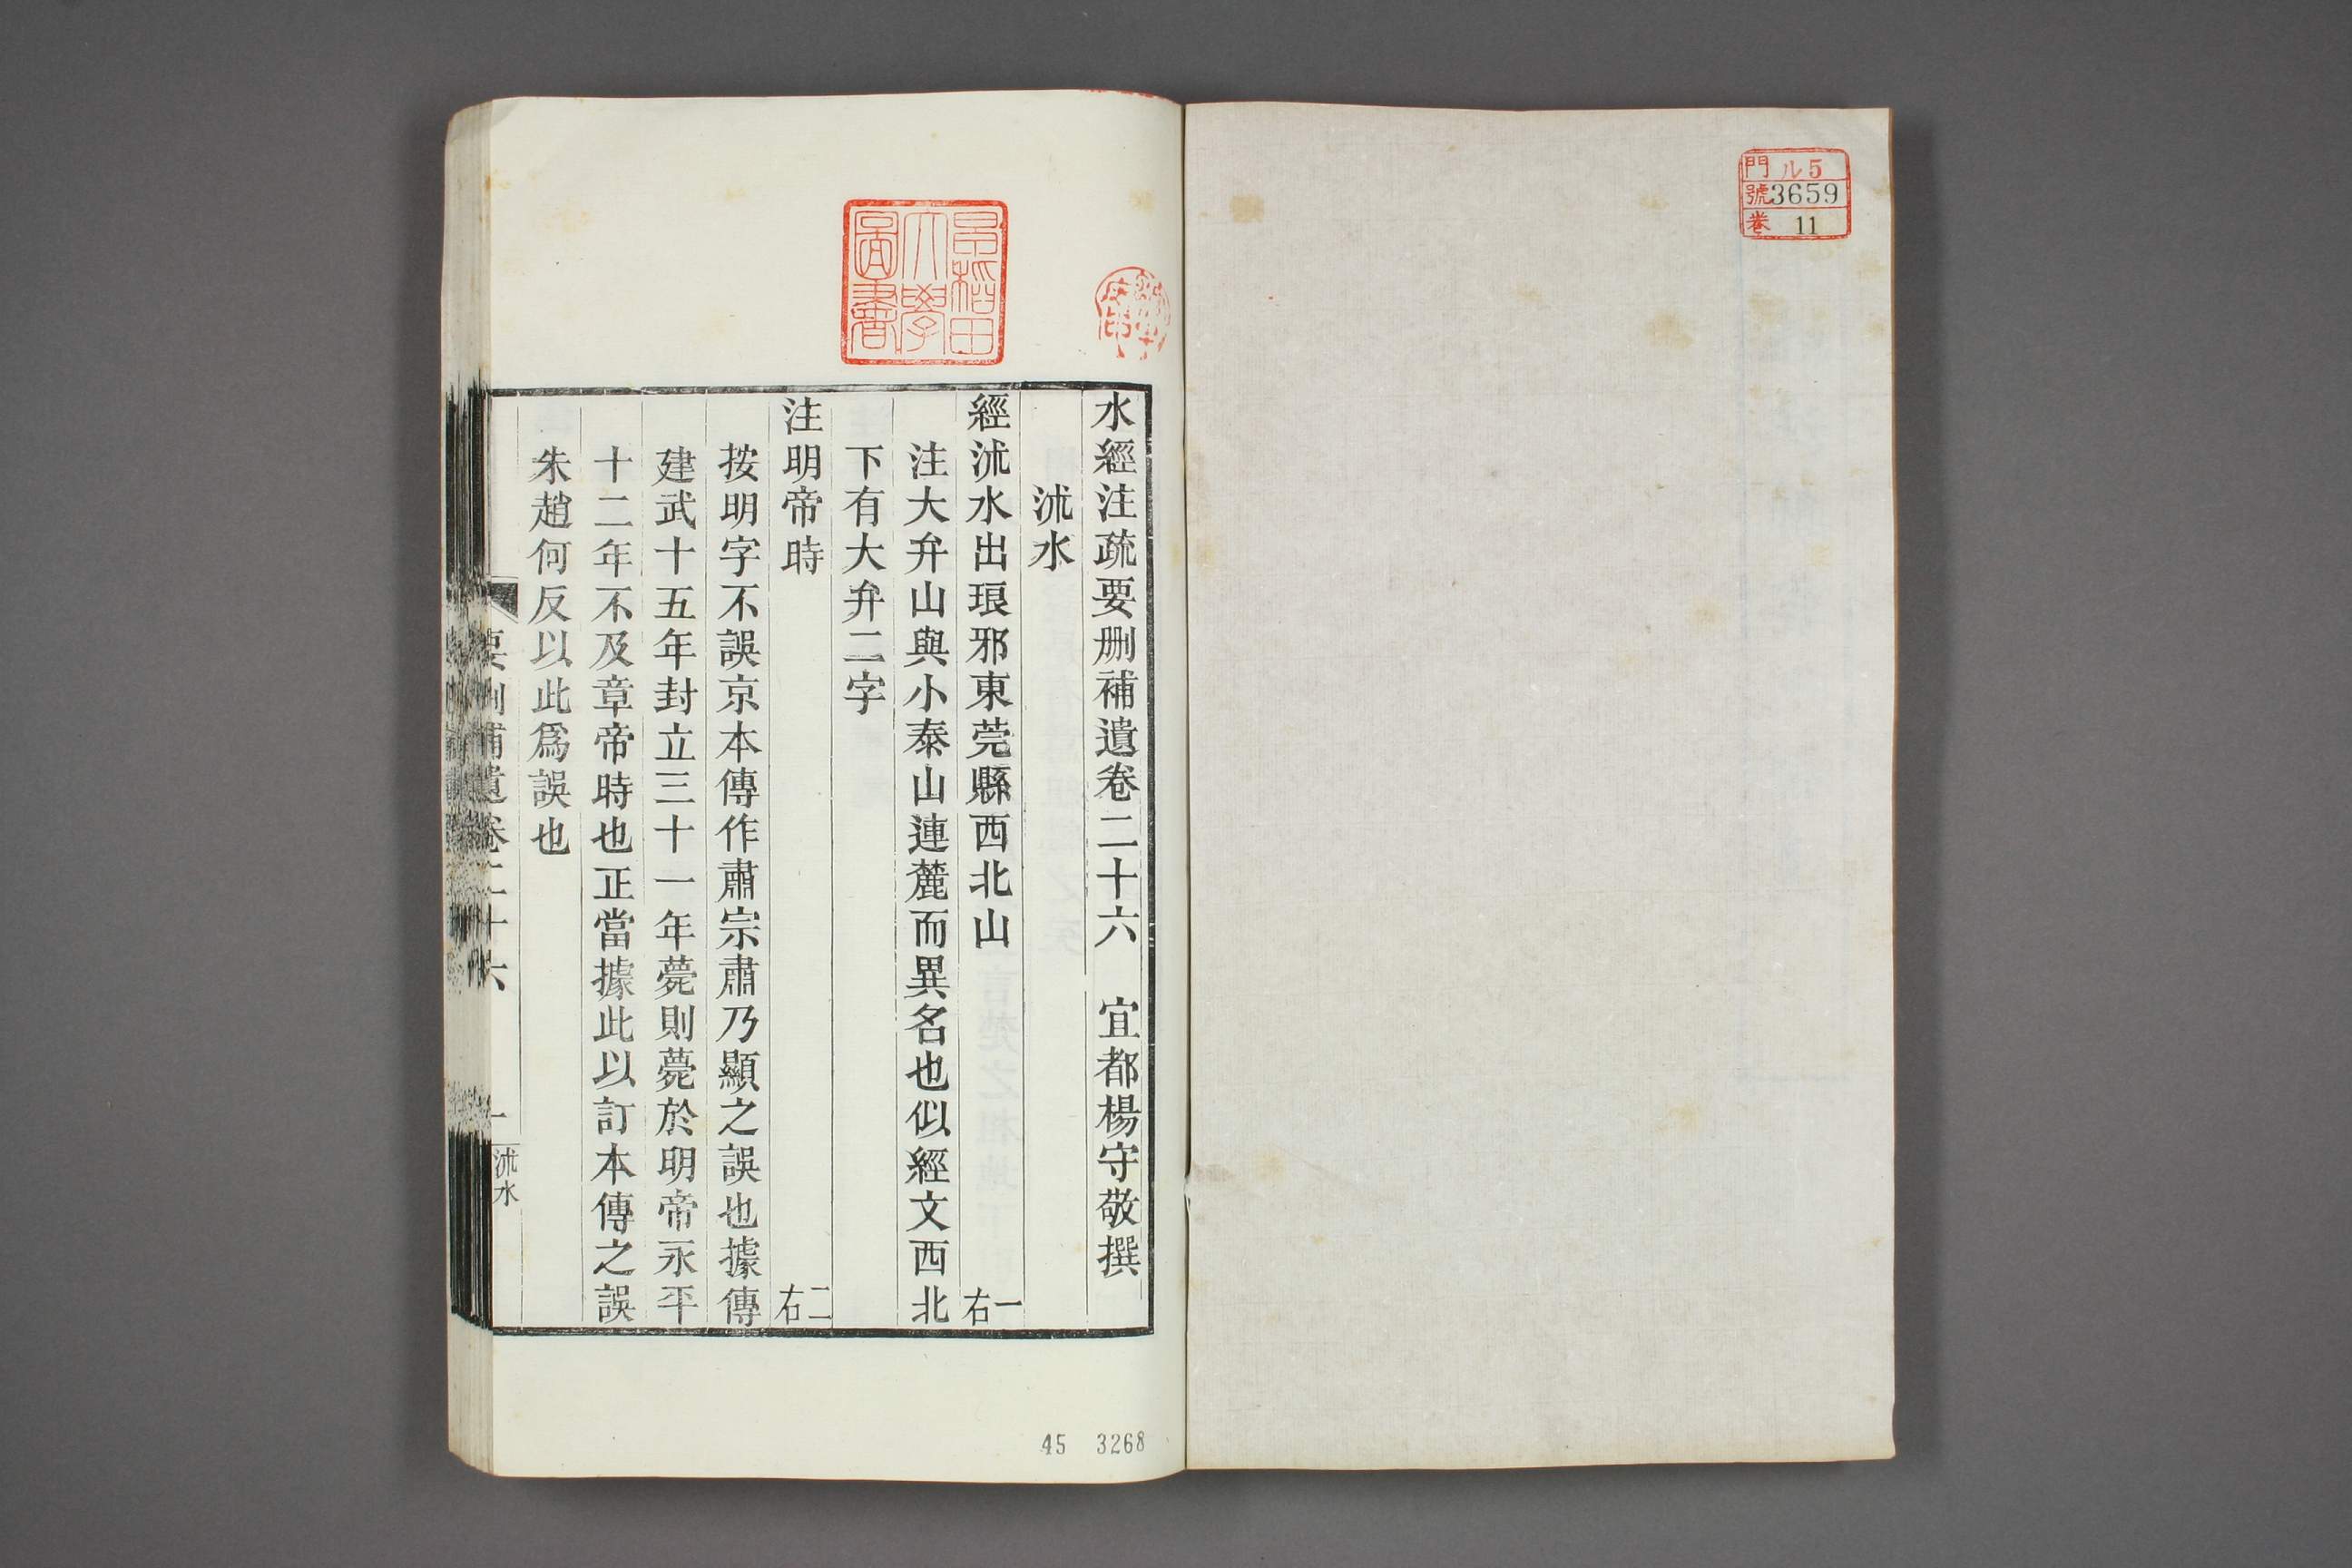 門 ル5
號 3659
卷 11
早稲田
大學
圖書
水經注疏要刪補遺卷二十六 宜都楊守敬撰
沭水
經沭水出琅邪東莞縣西北山 一右
注大弁山與小泰山連麓而異名也似經文西北
下有大弁二字
注明帝時 二右
按明字不誤京本傳作肅宗肅乃顯之誤也據傳
建武十五年封立三十一年薨則薨於明帝永平
十二年不及章帝時也正當據此以訂本傳之誤
朱趙何反以此爲誤也
要刪補遺卷二十六 一 沭水
45 3268